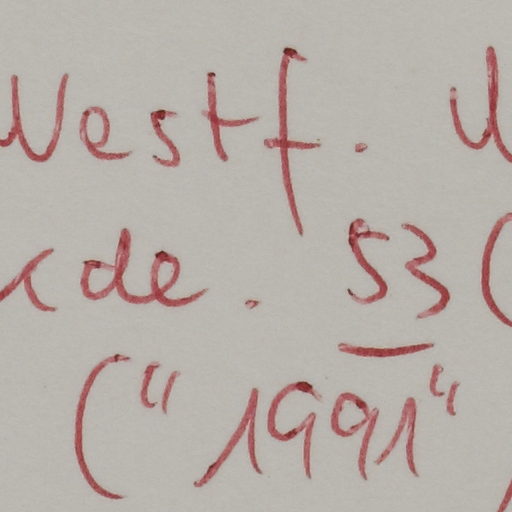 Westf.
de. 53 (
("1991"